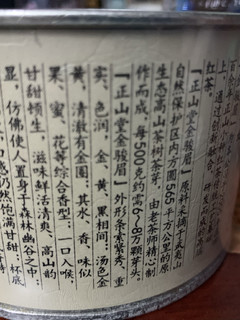 红茶。
『正山堂金骏眉』原料采摘于武夷山
自然保护区内方圆565平方公里的原
生态高山茶树茶芽，由老茶师精心制
作而成，每500克约需6-8万颗芽头。
『正山堂金骏眉』外形条索紧秀，重
实，色润，金、黄、黑相间，汤色金
黄，清澈有金圈，其水、香、味似
果、蜜、花等综合香型；一口入喉，
甘甜顿生，滋味鲜活清爽，高山韵
显，仿佛使人置身于森林幽谷之中；
仍然饱满甘甜；杯底